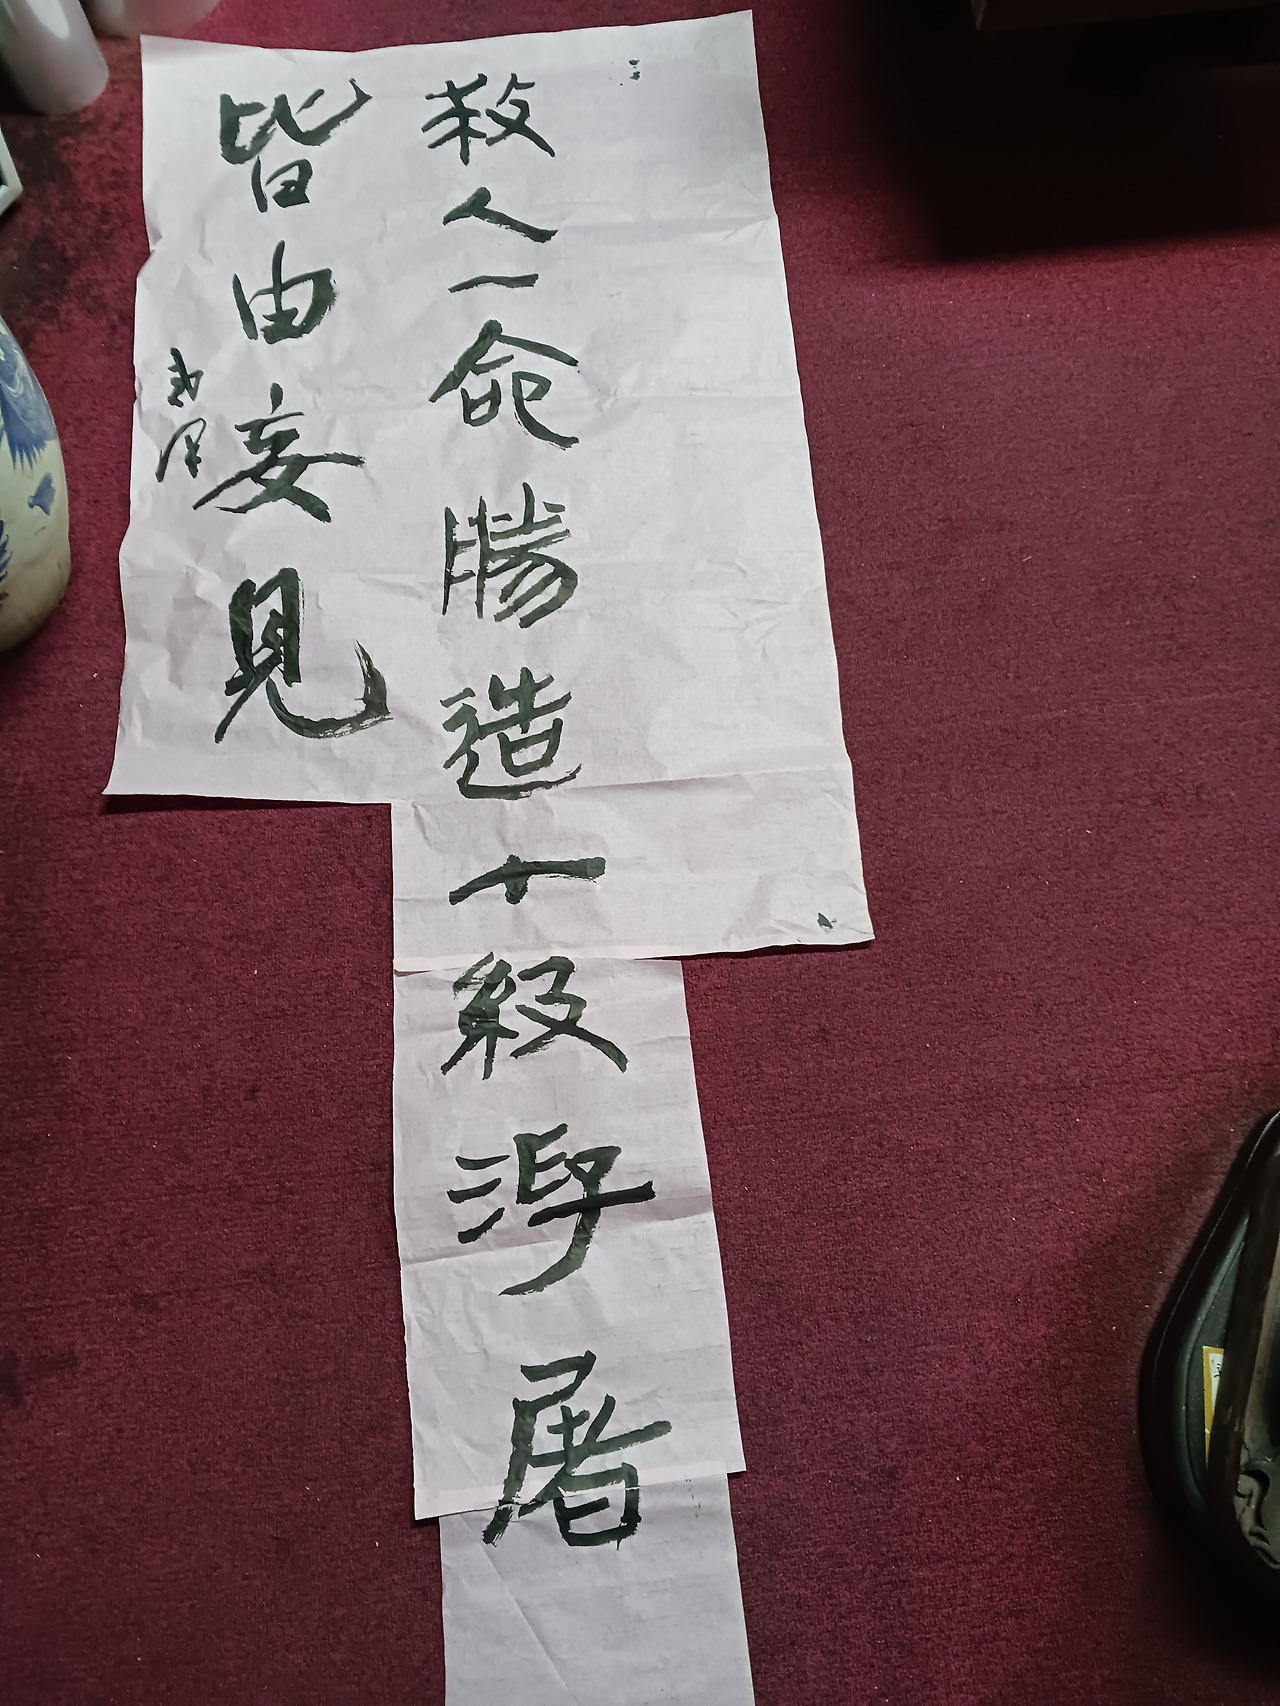 救人一命勝造十級浮屠
皆由妄見